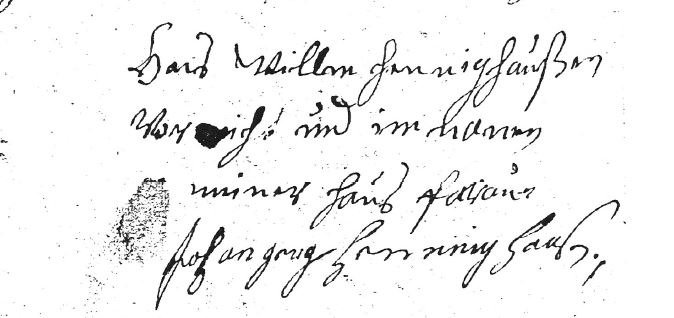 Hans Willm henninghaußen
Vor mich und im namen
meiner haus frauw
Johangorg henninghausen